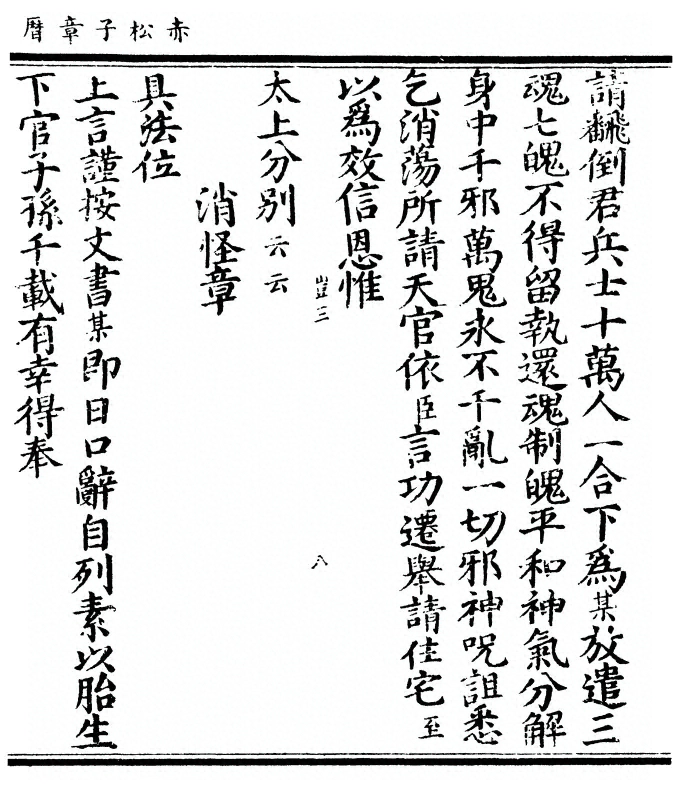 赤松子章曆
請飜倒君兵士十萬人一合下爲某放遣三
魂七魄不得留執還魂制魄平和神氣分解
身中千邪萬鬼永不干亂一切邪神呪詛悉
乞消蕩所請天官依臣言功遷舉請住宅至
以爲效信恩惟
豈三
八
太上分别云云
消怪章
具法位
上言謹按文書某即日口辭自列素以胎生
下官子孫千載有幸得奉